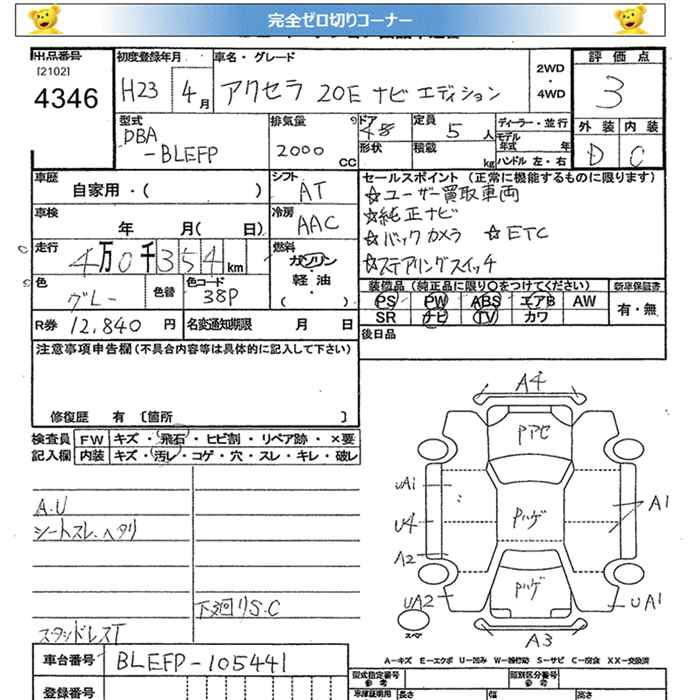 完全ゼロ切りコーナー
出品番号 初度登録年月 車名・グレード 2WD ・ 4WD 評価点
[2102]
4346 H23 4月 アクセラ 20E ナビ エディション 3
外装 内装
D C
型式 排気量 ドア 定員 ディーラー・並行
DBA 2000 CC 4 5 人 モデル年式 年
-BLEFP 形状 積載 kg ハンドル 左・右
車歴 シフト セールスポイント (正常に機能するものに限ります)
自家用・( ) AT ☆ユーザー買取車両
車検 冷房 ☆純正ナビ
年 月( 日) AAC ☆バックカメラ ☆ETC
走行 燃料 ☆ステアリングスイッチ
4万0千354km ガソリン・軽油・( )
色 色替 色コード 装備品(純正品に限り○をつけてください) 新車保証書
グレー 38P PS PW ABS エアB AW 有・無
R券 12,840 円 名変通知期限 月 日 SR ナビ TV カワ
後日品
注意事項申告欄(不具合内容等は具体的に記入して下さい)
修復歴 有 [箇所 ]
検査員 FW キズ・飛石・ヒビ割・リペア跡・×要
記入欄 内装 キズ・汚レ・コゲ・穴・スレ・キレ・破レ
A4
Pアセ
UA1
A.U
シートスレ、ヘタリ
U4 Pハゲ A1
A2
Pハゲ
UA2 UA1
スペア
下廻りS.C
スタッドレスT
A3
車台番号 BLEFP-105441
A-キズ E-エクボ U-凹み W-補修跡 S-サビ C-腐食 XX-交換済
登録番号 型式指定番号 参考 類別区分番号 参考
車庫証明用 長さ 幅 高さ